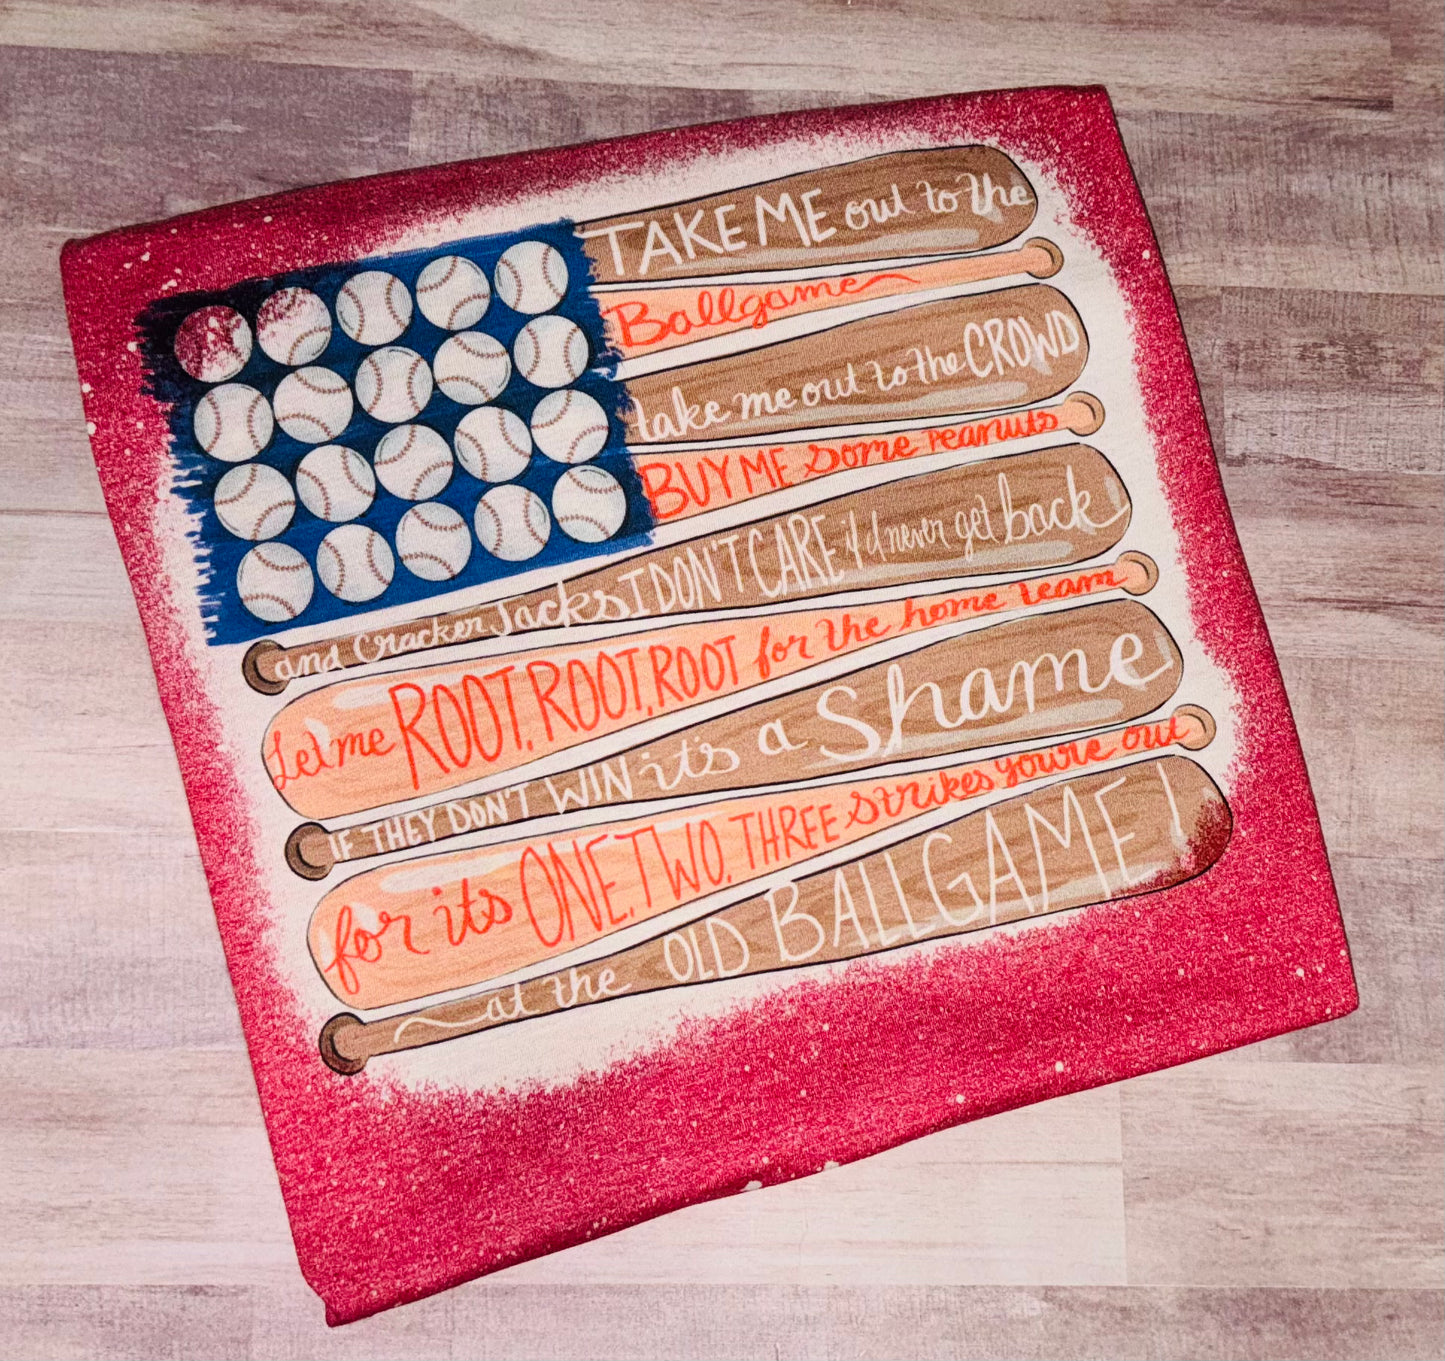 TAKE ME out to the
Ballgame
take me out to the CROWD
BUY ME some peanuts
and cracker Jacks I DON'T CARE if I'd never get back
Let me ROOT, ROOT, ROOT for the home team
IF THEY DON'T WIN it's a Shame
for it's ONE, TWO, THREE strikes you're out
at the OLD BALLGAME!